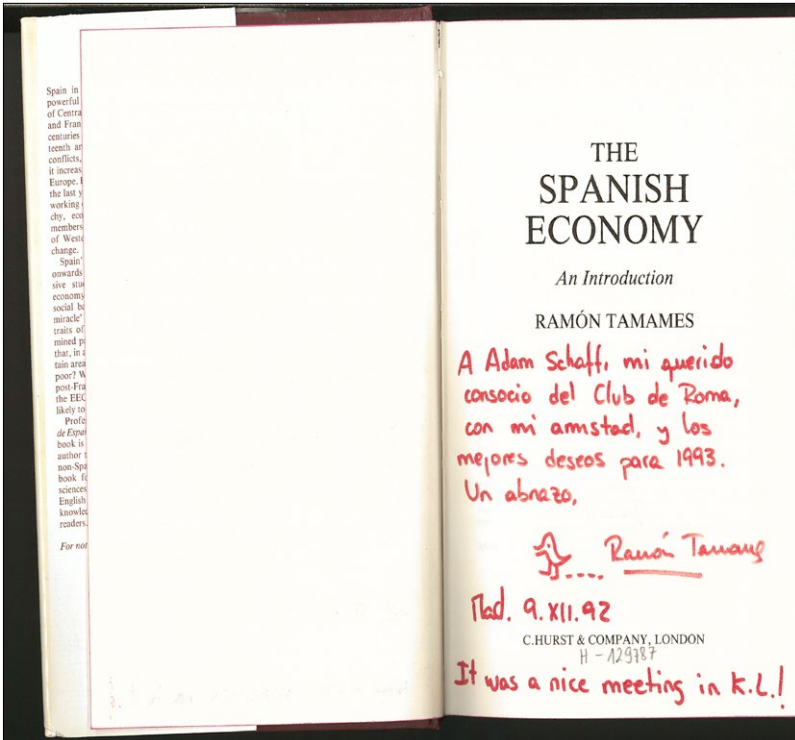 Spain in
powerful
of Centra
and Fran
centuries
teenth an
conflicts,
it increas
Europe.
the last y
working
chy, eco
members
of Weste
change.
Spain'
onwards
sive stu
economy
social ba
miracle'
traits of
mined p
that, in a
tain area
poor? W
post-Fra
the EEC
likely to
Profe
de Espa
book is
author
non-Spa
book fo
sciences
English
knowled
readers.
For not
THE
SPANISH
ECONOMY
An Introduction
RAMÓN TAMAMES
A Adam Schaff, mi querido
consocio del Club de Roma,
con mi amistad, y los
mejores deseos para 1993.
Un abrazo,
Ramón Tamames
Mad. 9.XII.92
C.HURST & COMPANY, LONDON
H-129787
It was a nice meeting in K.L.!